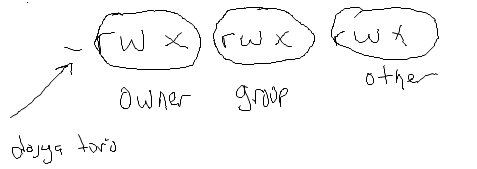 - rwx rwx rwx
owner group other
dosya türü